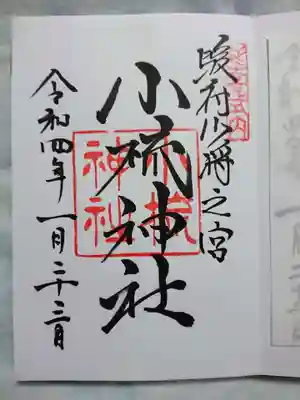 延喜式内
駿府少将之宮
小梳神社
小梳神社
令和四年一月二十三日